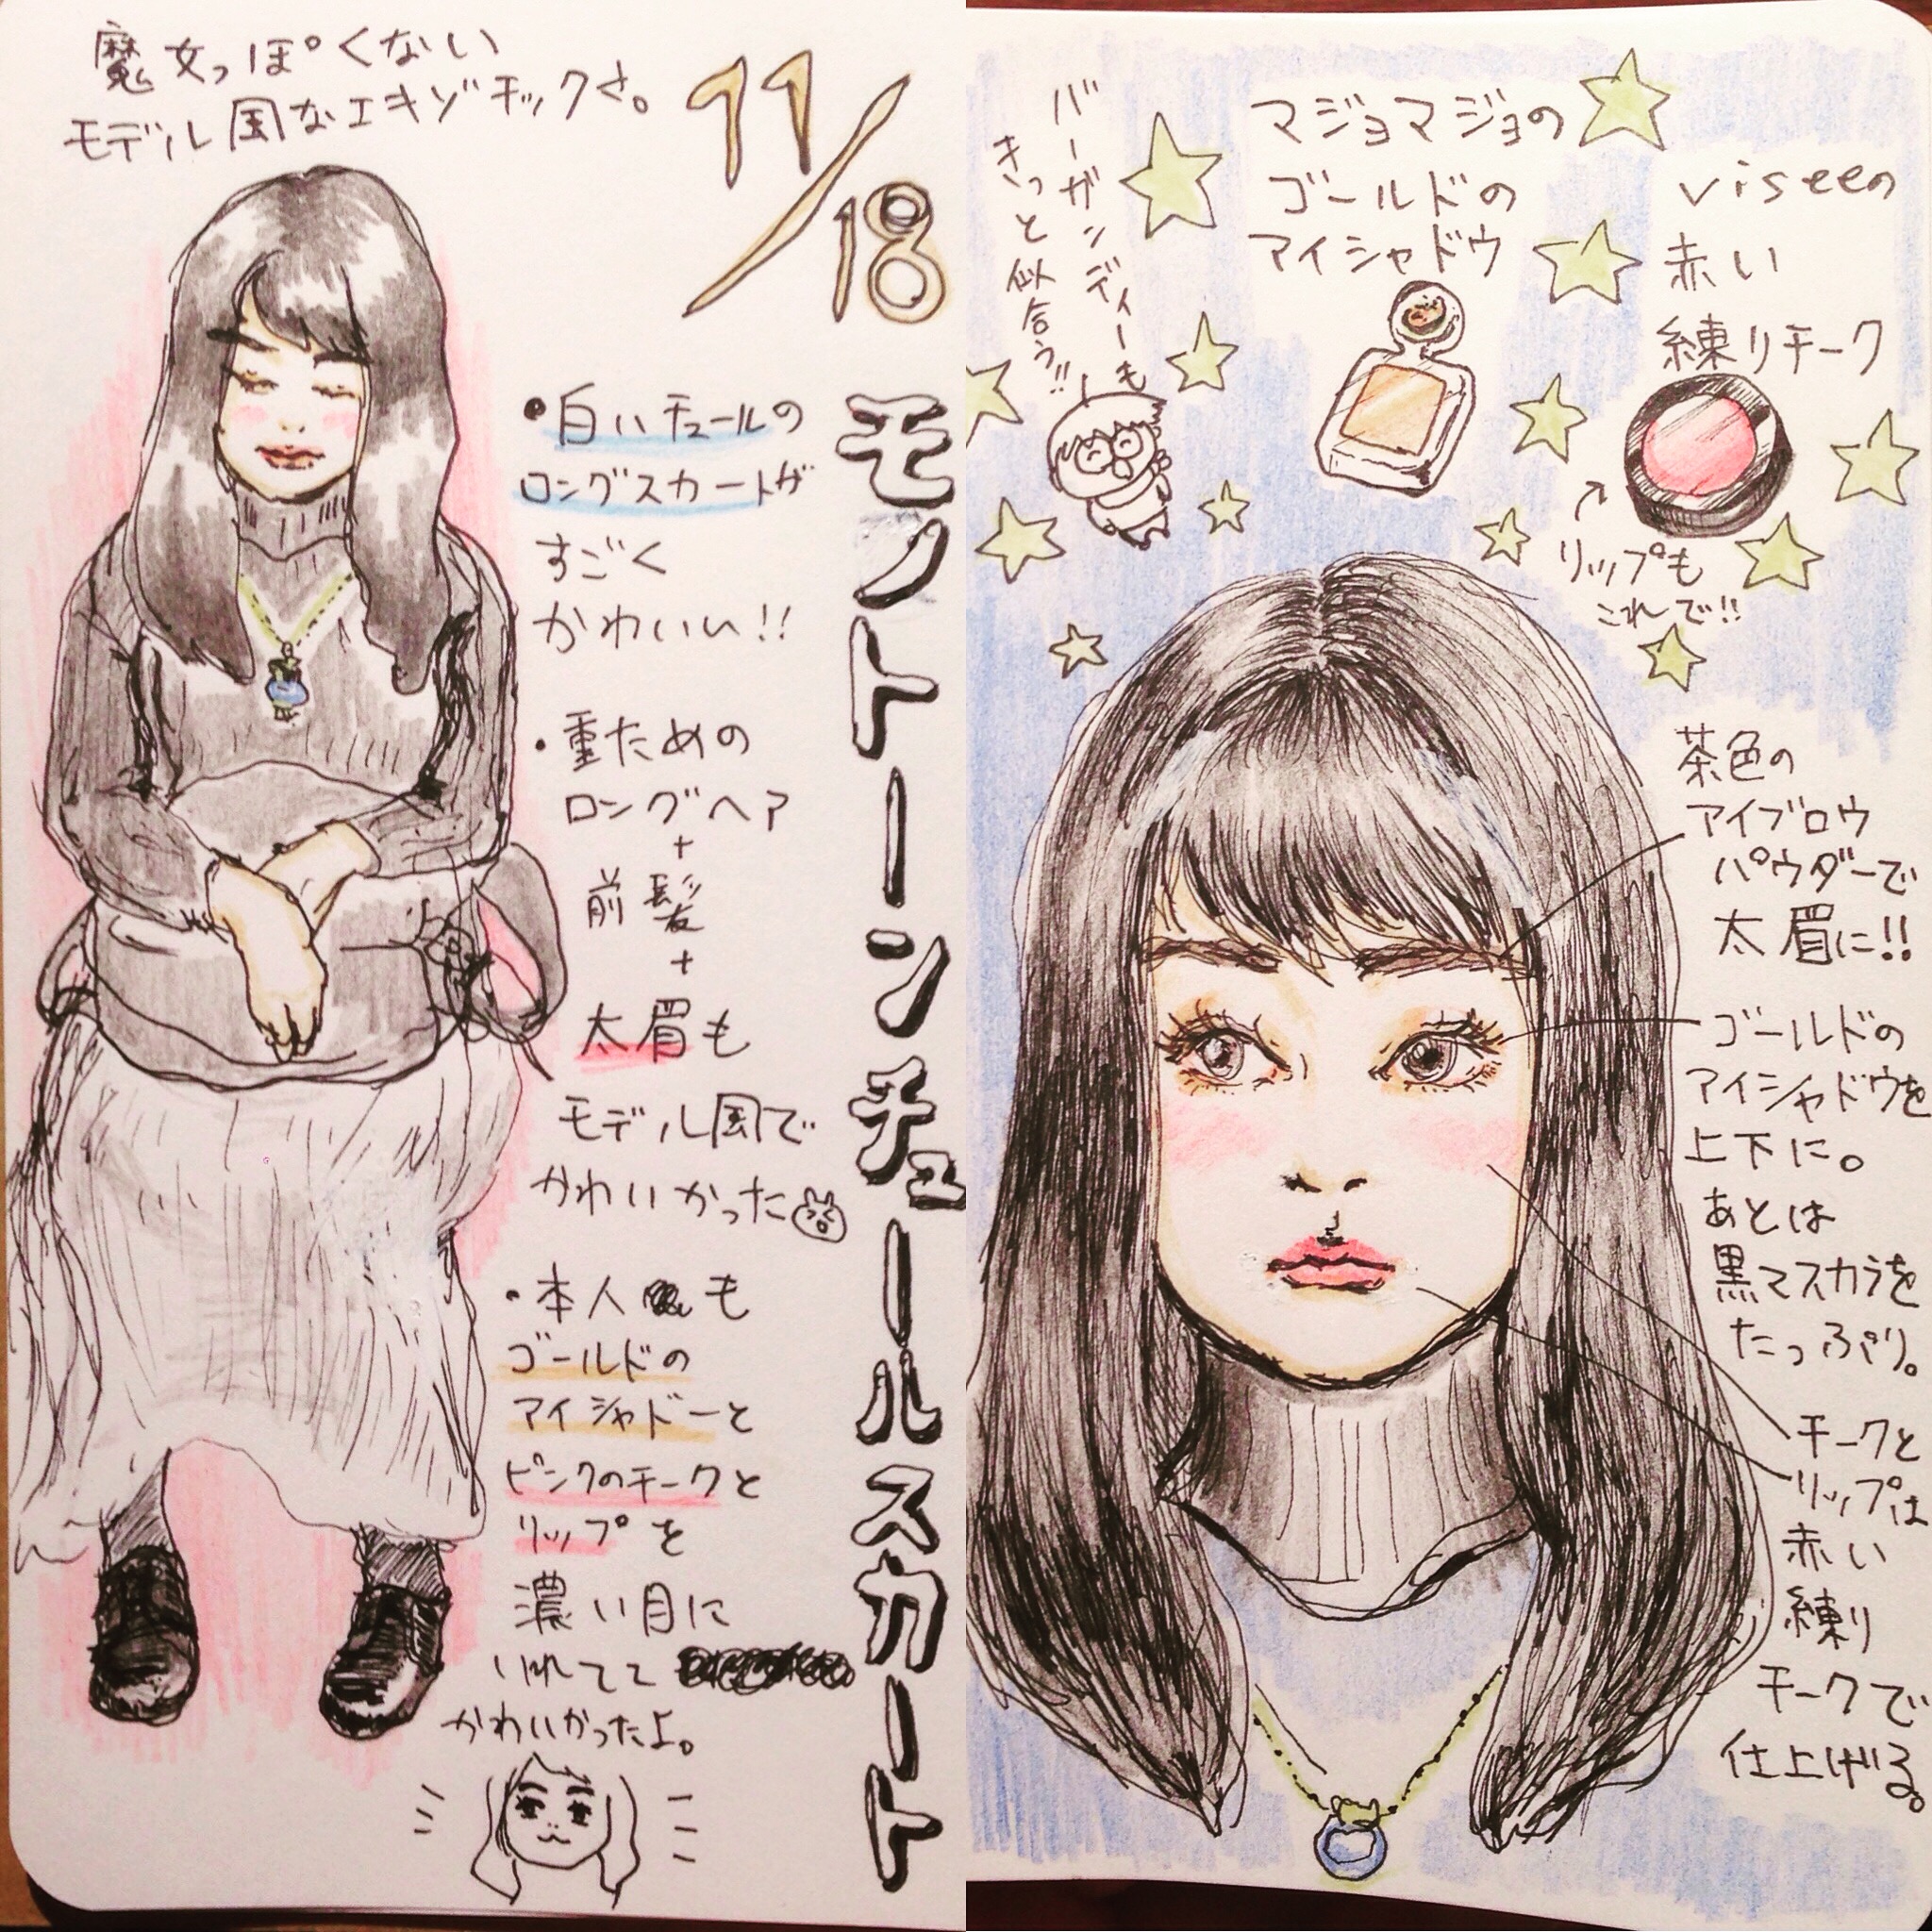 魔女っぽくない
モデル風なエキゾチックさ。
11/18
モノトーンチュールスカート
・白いチュールの
ロングスカートが
すごく
かわいい!!
・重ための
ロングヘア
+
前髪
+
太眉も
モデル風で
かわいかった
・本人も
ゴールドの
アイシャドーと
ピンクのチークと
リップを
濃い目に
いれてて
かわいかったよ。
バーガンディーも
きっと似合う!!
マジョマジョの
ゴールドの
アイシャドウ
viseeの
赤い
練りチーク
リップも
これで!!
茶色の
アイブロウ
パウダーで
太眉に!!
ゴールドの
アイシャドウを
上下に。
あとは
黒マスカラを
たっぷり。
チークと
リップは
赤い
練り
チークで
仕上げる。